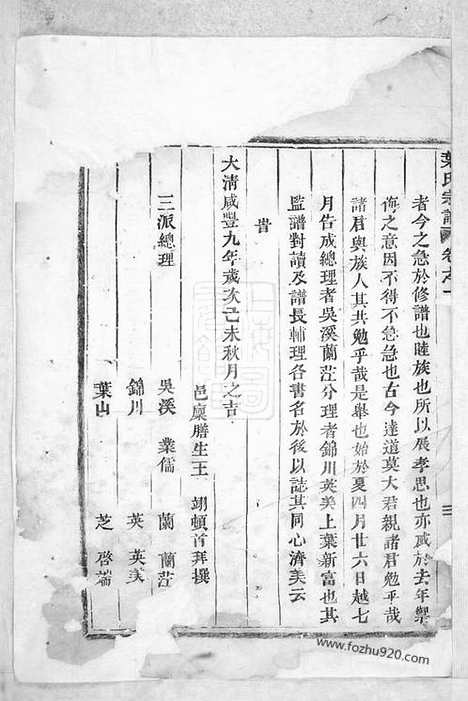 葉氏宗譜 卷之一
者今之急於修譜也睦族也所以展孝思也亦威於去年禦
侮之意因不得不急急也古今達道莫大君親諸君勉乎哉
諸君與族人其共勉乎哉是舉也始於夏四月廿六日越七
月告成總理者吳溪蘭茳分理者錦川英美上葉新富也其
監譜對讀及譜長輔理各書名於後以誌其同心濟美云
旹
大清咸豐九年歲次己未秋月之吉
邑廩膳生王 翊頓首拜撰
三派總理
吳溪 業儒 蘭 蘭茳
錦川 英 英美
葉山 芝 啓端
www.fozhu920.com